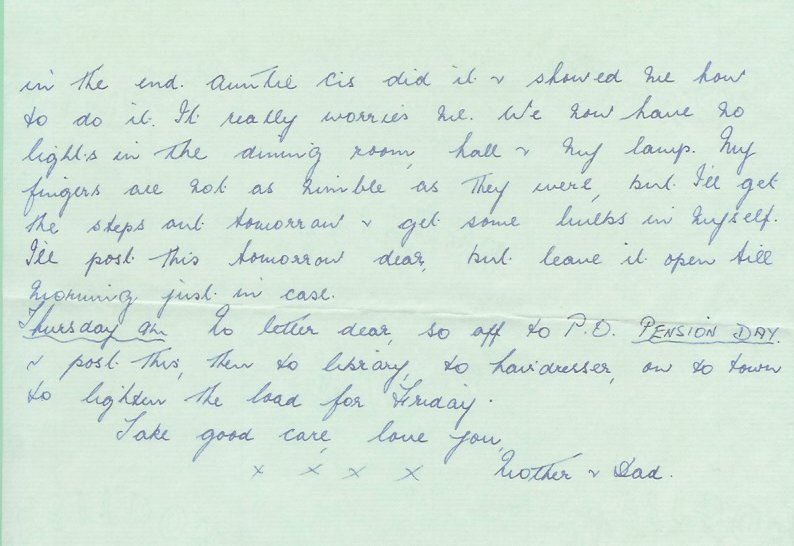 in the end. Auntie Cis did it & showed me how
to do it. It really worries me. We now have no
lights in the dining room, hall & my lamp. My
fingers are not as nimble as they were, but I'll get
the steps out tomorrow & get some bulbs in myself.
I'll post this tomorrow dear, but leave it open till
morning just in case.
Thursday am No letter dear, so off to P.O. PENSION DAY.
& post this, then to library, to hairdresser, on to town
to lighten the load for Friday.
Take good care, love you,
x x x x Mother & Dad.